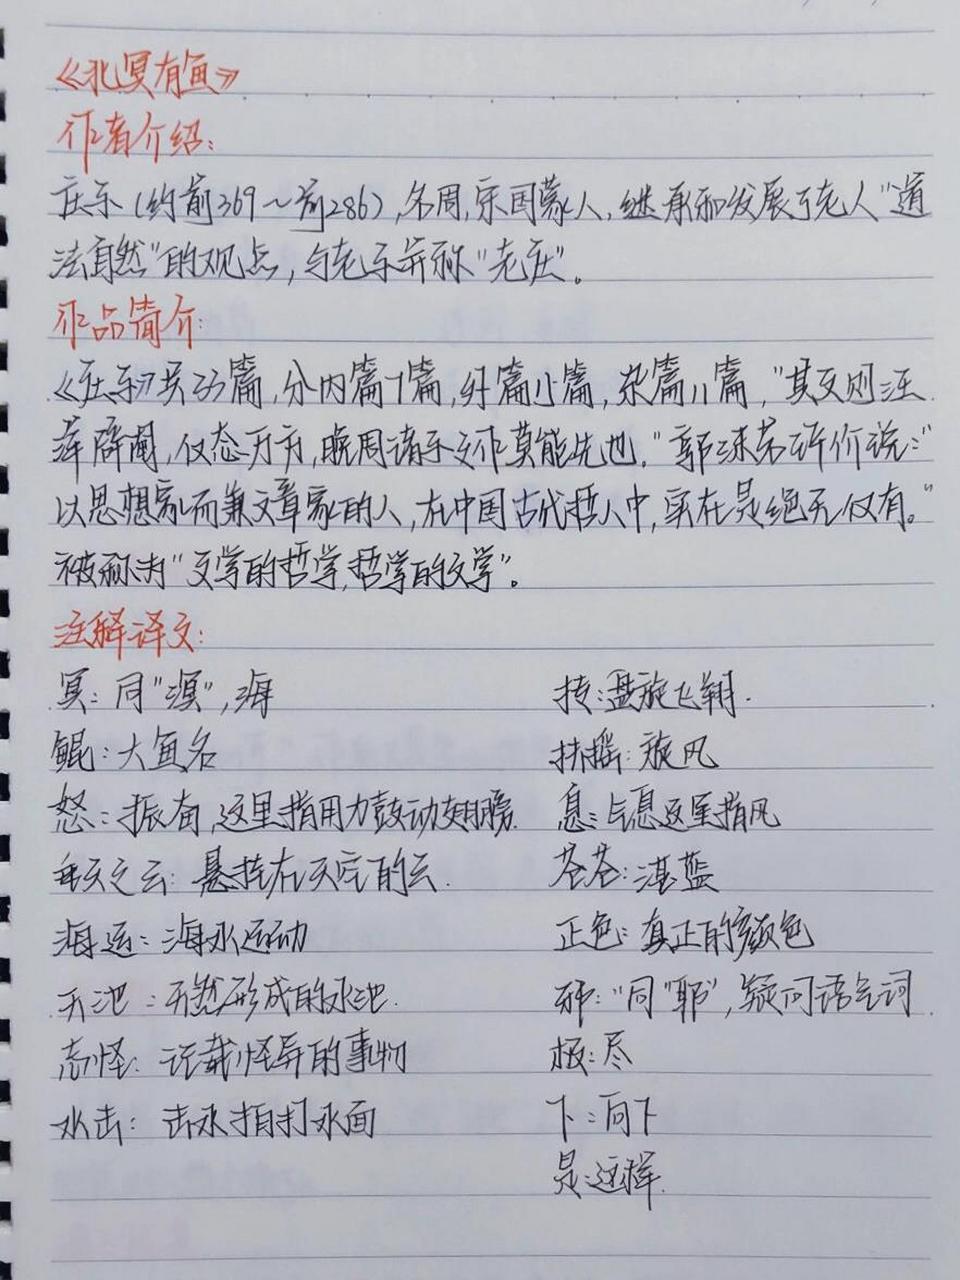 《北冥有鱼》
作者介绍:
庄子(约前369~前286),名周,宋国蒙人,继承和发展了老人"道
法自然"的观点,与老子并称"老庄"。
作品简介:
《庄子》共33篇,分内篇7篇,外篇15篇,杂篇11篇,"其文则汪
洋辟阖,仪态万方,晚周诸子之作莫能先也."郭沫若评价说:"
以思想家而兼文章家的人,在中国古代哲人中,实在是绝无仅有。"
被称为"文学的哲学,哲学的文学"。
注释译文:
冥:同"溟",海
鲲:大鱼名
怒:振奋,这里指用力鼓动翅膀.
垂天之云:悬挂在天空的云.
海运:海水运动
天池:天然形成的水池.
志怪:记载怪异的事物
水击:击水拍打水面
抟:盘旋飞翔.
扶摇:旋风
息:气息这里指风
苍苍:湛蓝
正色:真正的颜色
邪:"同"耶",疑问语气词
极:尽
下:向下
是:这样.